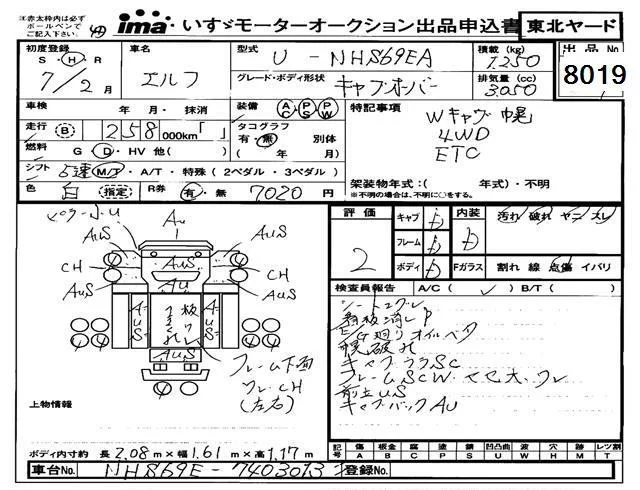 ※赤太枠内は必ず
ボールペンで
ご記入下さい。
ima・いすゞモーターオークション出品申込書 東北ヤード
初度登録 S・H・R 7/2月
車名 エルフ
型式 U-NHS69EA
グレード・ボディ形状 キャブオーバー
積載(kg) 1.250
排気量(cc) 3.050
出品No.
8019
車検 年・月・抹消
装備 AC PS PW
特記事項
Wキャブ 幌
4WD
ETC
走行(B) 258,000km「 」
タコグラフ 有・無 別体
( 年 月)
燃料 G・D・HV 他( )
シフト 5速 M/T・A/T・特殊(2ペダル・3ペダル)
架装物年式:( 年式)・不明
※不明の場合は、不明に○をする。
色 白 (指定) R券 有・無 7020円
AuS
CH
AuS
Au
AuS
AuS
CH
AuS
AuS
AuS
AuS
フレーム下面
CH
(左右)
上物情報
ボディ内寸約 長2.08m×幅1.61m×高1.17m
評価 2
キャブ D
フレーム D
ボディ D
内装 D
汚れ 破れ ヤニ スレ
Fガラス 割れ 線 点傷 イバリ
検査員報告 A/C( ✓ )B/T( )
シート
オイル
破れ
キャブウラSC
フレームSCW
前立US
キャブバックAU
記号 傷 板金 腐 塗 錆 凹凸曲 波 穴 跡 レツ割
A B C P S U W H M T
車台No. NHS69E-7403013
登録No.